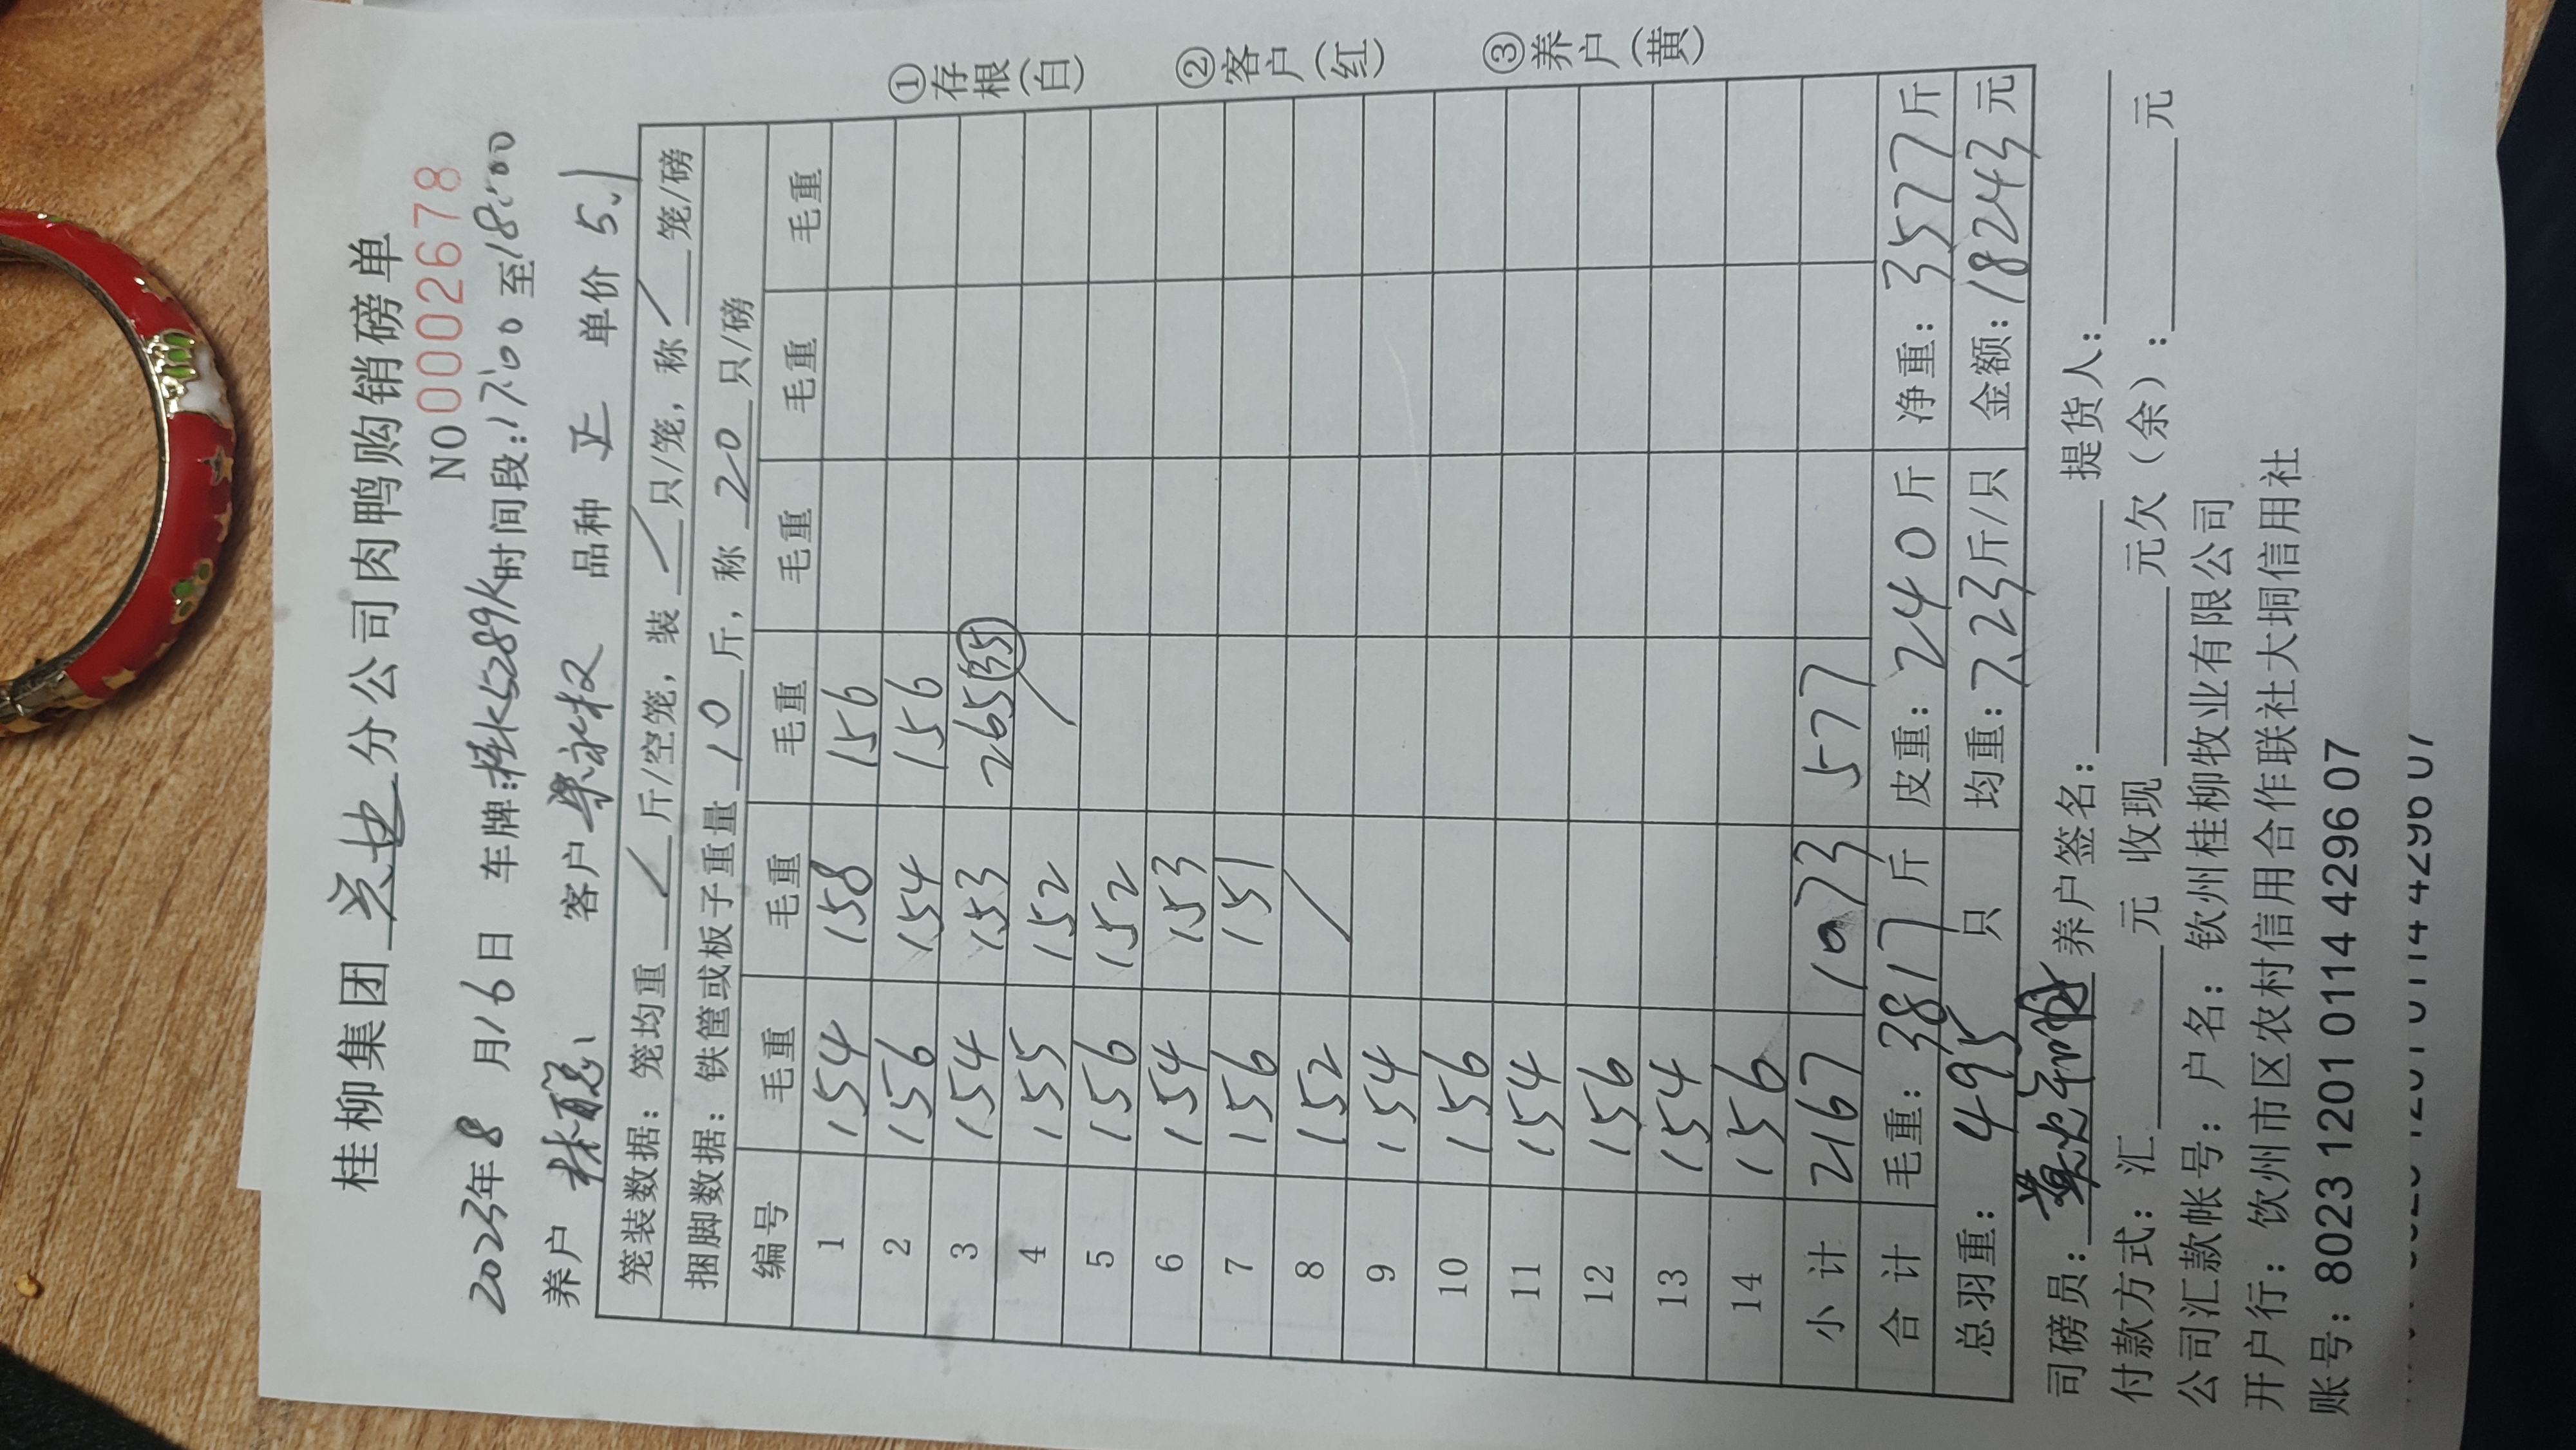 桂柳集团 灵山 分公司肉鸭购销磅单
NO 0002678
2023年 8 月 16 日 车牌: K5289K 时间段: 17:00 至 18:00
养户 林 客户 权 品种 正 单价 5.1
笼装数据: 笼均重 / 斤/空笼, 装 / 只/笼, 称 / 笼/磅
捆脚数据: 铁筐或板子重量 10 斤, 称 20 只/磅
编号 毛重 毛重 毛重 毛重 毛重 毛重
1 154 158 156
2 156 154 156
3 154 153 265 (35)
4 155 152 /
5 156 152
6 154 153
7 156 151
8 152 /
9 154
10 156
11 154
12 156
13 154
14 156
小计 2167 1073 577
合计 毛重: 3817 斤 皮重: 240 斤 净重: 3577 斤
总羽重: 495 只 均重: 7.23 斤/只 金额: 18243 元
司磅员: 养户签名: 提货人:
付款方式: 汇 元 收现 元欠(余): 元
公司汇款帐号: 户名: 钦州桂柳牧业有限公司
开户行: 钦州市区农村信用合作联社大垌信用社
账号: 8023 1201 0114 4296 07
①存根(白) ②客户(红) ③养户(黄)